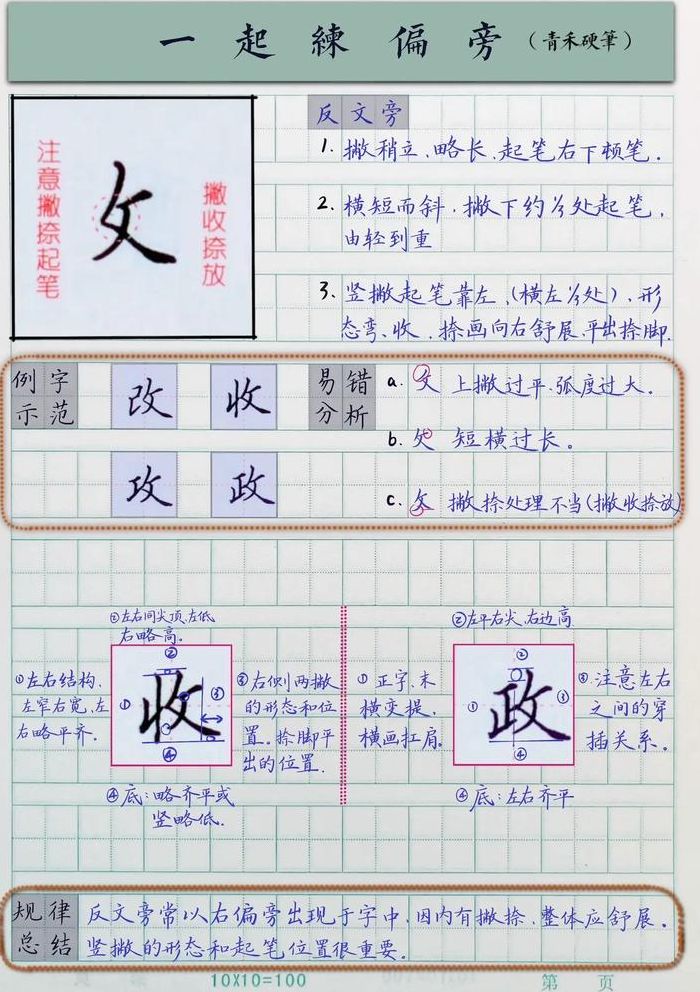 一起練偏旁（青禾硬筆）
注意撇捺起笔
攵
撇收捺放
反文旁
1. 撇稍立、略长、起笔右下顿笔.
2. 横短而斜.撇下约⅓处起笔,
由轻到重
3. 竖撇起笔靠左,(横左⅓处),形
态弯、收.捺画向右舒展.平出捺脚.
例字
示范
改 收
攻 政
易错
分析
a. 攵 上撇过平.弧度过大.
b. 攵 短横过长。
c. 攵 撇捺处理不当(撇收捺放)
②左右间尖顶.左低
右略高.
①左右结构、
左窄右宽、左
右略平齐.
收
① ② ③ ④
③右侧两撇
的形态和位
置。捺脚平
出的位置.
④底:略齐平或
竖略低.
②左平右尖.右边高
①正字、末
横变提.
横画扛肩。
政
① ② ③ ④
③.注意左右
之间的穿
插关系.
④底:左右齐平
规律
总结
反文旁常以右偏旁出现于字中.因内有撇捺.整体应舒展.
竖撇的形态和起笔位置很重要.
10X10=100
第 页